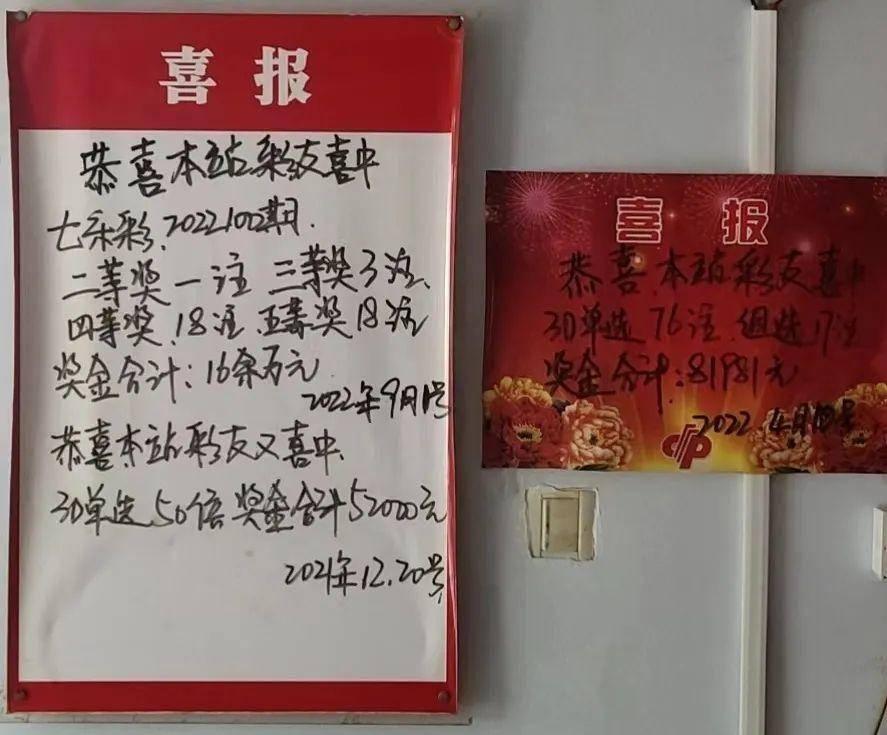 喜报
恭喜本站彩友喜中
七乐彩.2022100期.
二等奖一注 三等奖3注、
四等奖.18注 五等奖18注
奖金合计:16余万元
2022年9月1号
恭喜本站彩友又喜中.
3D单选50倍 奖金合计52000元
2021年12.20号
喜报
恭喜.本站彩友喜中
3D单选76注.组选17注
奖金合计:81981元
2022 4月 号